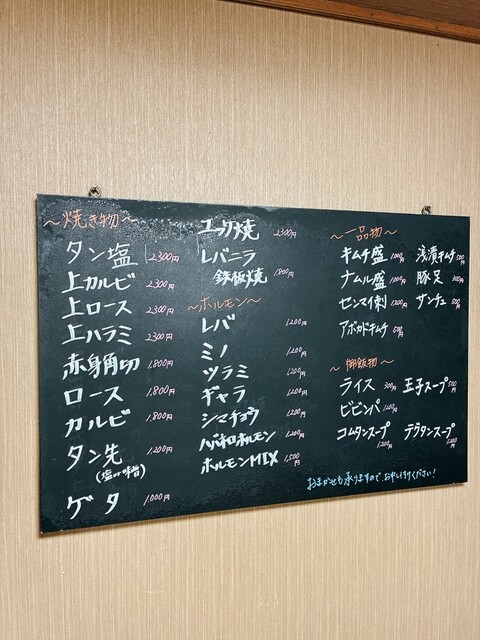 〜焼き物〜
タン塩 2,300円
上カルビ 2,300円
上ロース 2,300円
上ハラミ 2,300円
赤身角切 1,800円
ロース 1,800円
カルビ 1,800円
タン先 1,200円
(塩or味噌)
ゲタ 1,000円
ユッケ焼 2,300円
レバニラ
鉄板焼 1,800円
〜ホルモン〜
レバ 1,200円
ミノ 1,200円
ツラミ 1,200円
ギャラ 1,200円
シマチョウ 1,200円
ハバネロホルモン 1,200円
ホルモンMIX 1,500円
〜一品物〜
キムチ盛 1,000円 浅漬キムチ 500円
ナムル盛 1,000円 豚足
センマイ刺 1,200円 サンチュ 500円
アボカドキムチ 500円
〜御飯物〜
ライス 300円 玉子スープ 500円
ビビンバ 1,200円
コムタンスープ 1,200円 テグタンスープ 1,200円
おまかせも承りますので、お申し付けください!